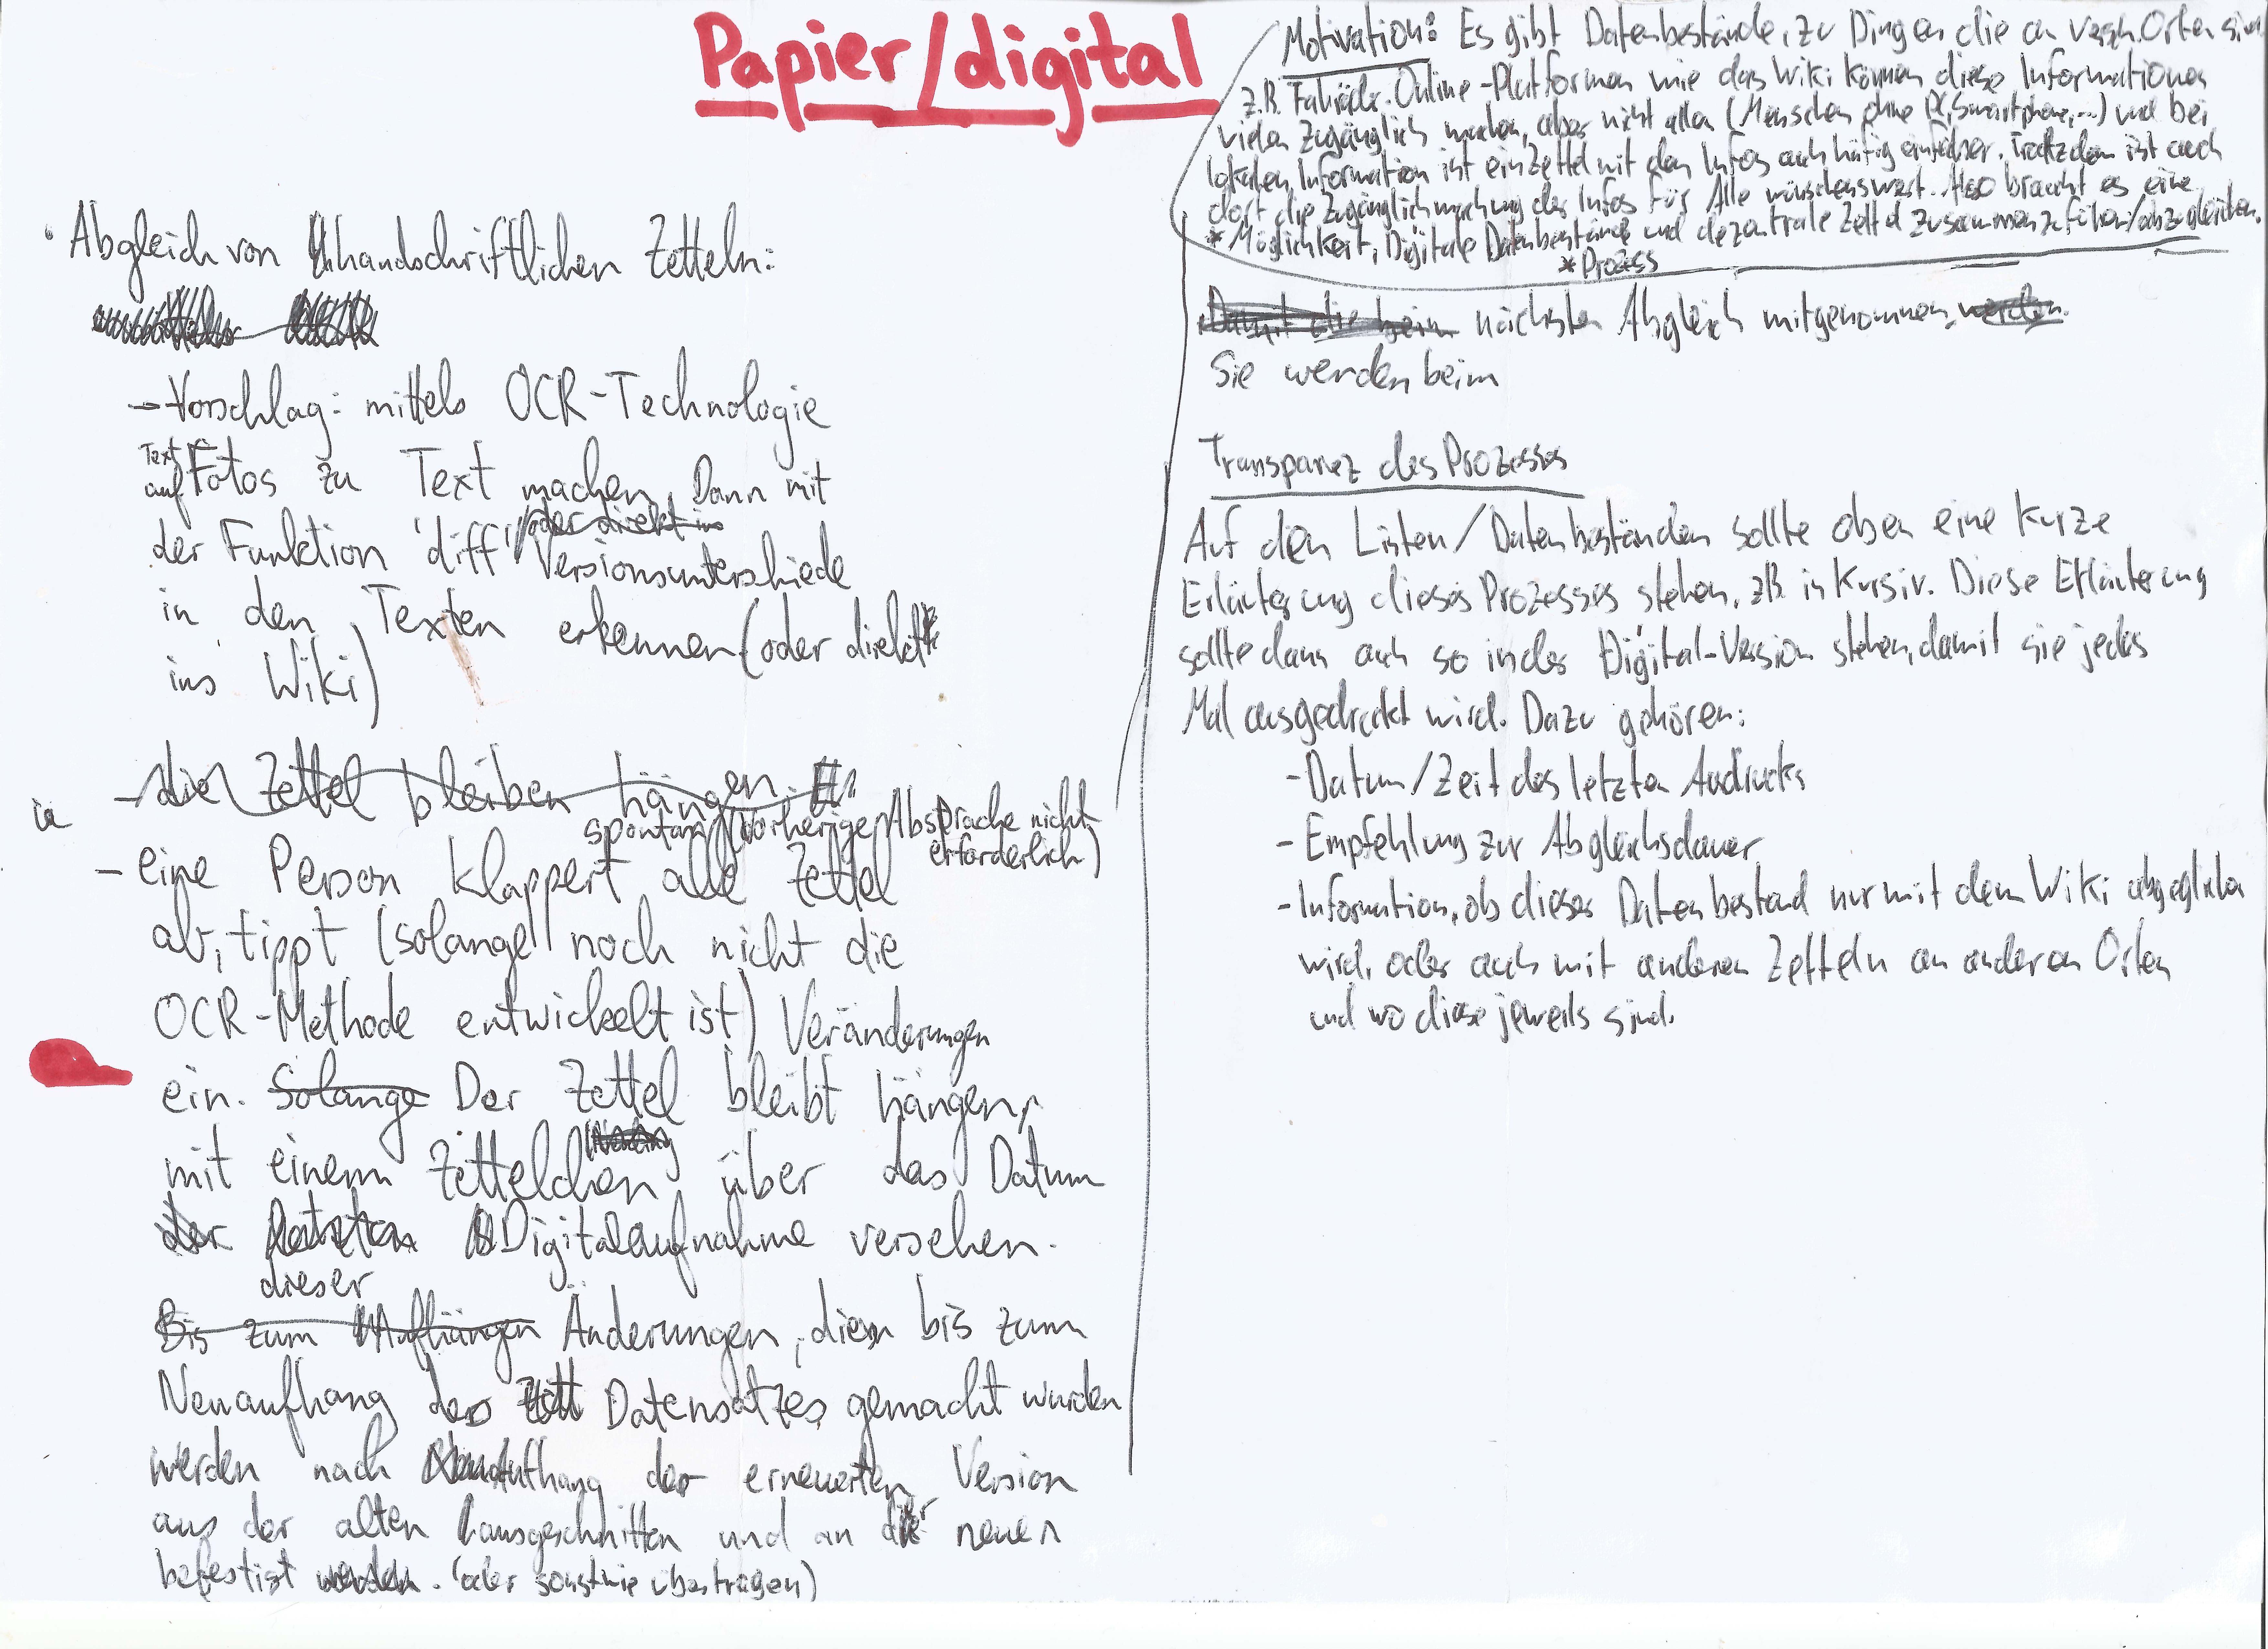 Papier/digital
Motivation: Es gibt Datenbestände, zu Dingen die an versch. Orten sind
z.B. Fahrräder. Online-Platformen wie das Wiki können diese Informationen
vielen zugänglich machen, aber nicht allen (Menschen ohne PC, Smartphone,...) und bei
lokalen Information ist ein Zettel mit den Infos auch häufig einfacher. Trotzdem ist auch
dort die Zugänglichmachung der Infos für Alle wünschenswert. Also braucht es eine
* Möglichkeit, Digitale Datenbestände und dezentrale Zettel zusammenzuführen/abzugleichen.
* Prozess
• Abgleich von handschriftlichen Zetteln:
→ Vorschlag: mittels OCR-Technologie
Text auf Fotos zu Text machen. Dann mit
oder direkt ins
der Funktion 'diff' Versionsunterschiede
in den Texten erkennen (oder direkt
ins Wiki)
- die Zettel bleiben hängen.
spontan (vorherige Absprache nicht
erforderlich)
- eine Person klappert alle Zettel
ab, tippt (solange noch nicht die
OCR-Methode entwickelt ist) Veränderungen
ein. Solange Der Zettel bleibt hängen,
mit einem Zettelchen über das Datum
der letzten Digitalaufnahme versehen.
dieser
Bis zum Aufhängen Änderungen, die bis zum
Neuaufhang des Datensatzes gemacht wurden
werden nach Aufhang der erneuerten Version
aus der alten ausgeschnitten und an der neuen
befestigt werden. (oder sonstwie übertragen)
Damit die beim nächsten Abgleich mitgenommen werden.
Sie werden beim
Transparez des Prozesses
Auf den Listen/Datenbeständen sollte oben eine kurze
Erläuterung dieses Prozesses stehen, z.B. in Kursiv. Diese Erläuterung
sollte dann auch so in der Digital-Version stehen, damit sie jedes
Mal ausgedruckt wird. Dazu gehören:
- Datum/Zeit des letzten Audrucks
- Empfehlung zur Abgleichsdauer
- Information, ob dieser Datenbestand nur mit dem Wiki abgeglichen
wird, oder auch mit anderen Zetteln an anderen Orten
und wo diese jeweils sind.